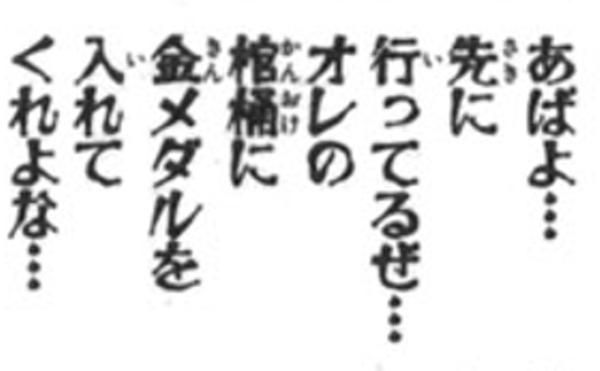 あばよ…
先に
行ってるぜ…
オレの
棺桶に
金メダルを
入れて
くれよな…